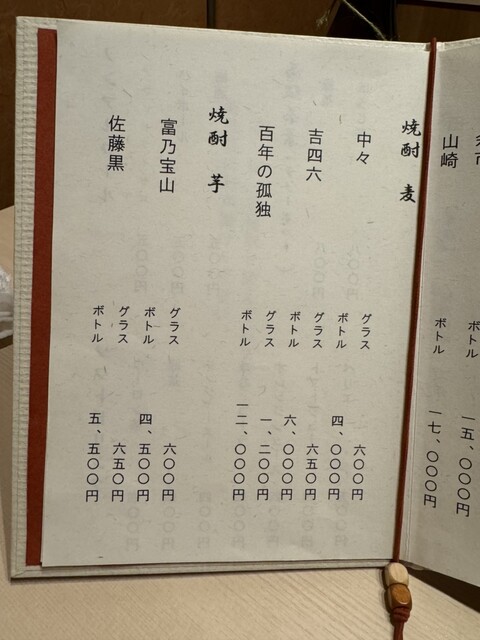 ボトル 一五、〇〇〇円
山崎
ボトル 一七、〇〇〇円
焼酎 麦
中々
グラス 六〇〇円
ボトル 四、〇〇〇円
吉四六
グラス 六五〇円
ボトル 六、〇〇〇円
百年の孤独
グラス 一、二〇〇円
ボトル 一二、〇〇〇円
焼酎 芋
富乃宝山
グラス 六〇〇円
ボトル 四、五〇〇円
佐藤黒
グラス 六五〇円
ボトル 五、五〇〇円